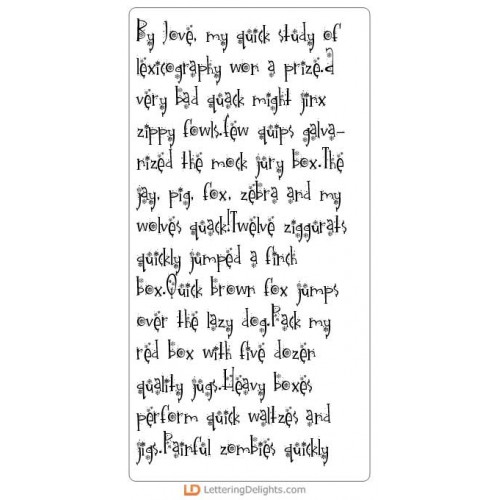 By Jove, my quick study of
lexicography won a prize.A
very bad quack might jinx
zippy fowls.Few quips galva-
nized the mock jury box.The
jay, pig, fox, zebra and my
wolves quack!Twelve ziggurats
quickly jumped a finch
box.Quick brown fox jumps
over the lazy dog.Pack my
red box with five dozen
quality jugs.Heavy boxes
perform quick waltzes and
jigs.Painful zombies quickly
LD LetteringDelights.com